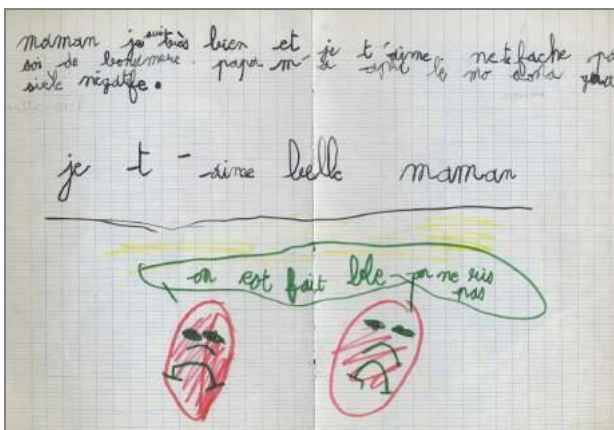 maman je suis très bien et je t'aime ne te fache pa
soi de bonumere. papa m'a apri le mo
siècle négatife.
je t'-aime belle maman
on est fait ble on ne ris
pas